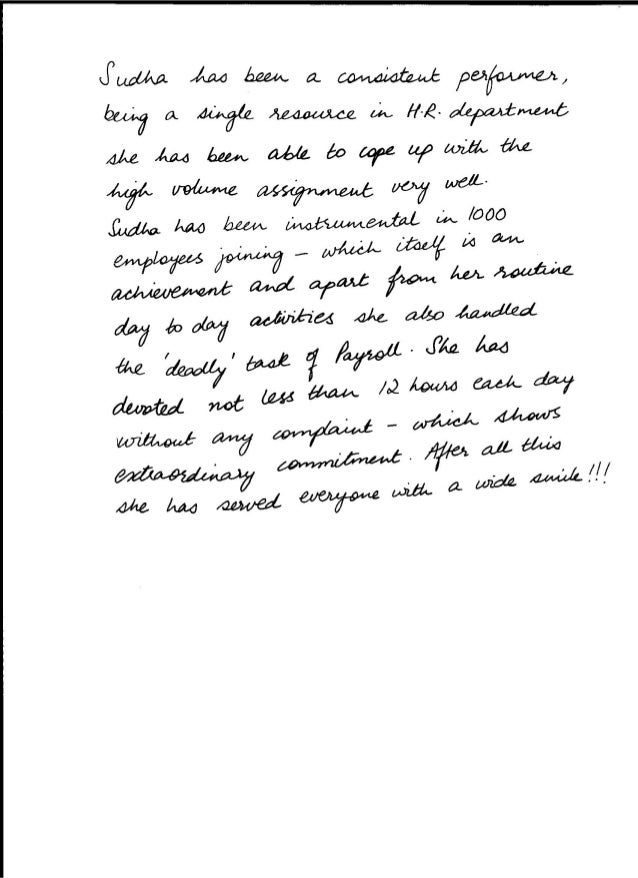 Sudha has been a consistent performer,
being a single resource in H.R. department
she has been able to cope up with the
high volume assignment very well.
Sudha has been instrumental in 1000
employees joining – which itself is an
achievement and apart from her routine
day to day activities she also handled
the 'deadly' task of Payroll. She has
devoted not less than 12 hours each day
without any complaint – which shows
extraordinary commitment. After all this
she has served everyone with a wide smile!!!